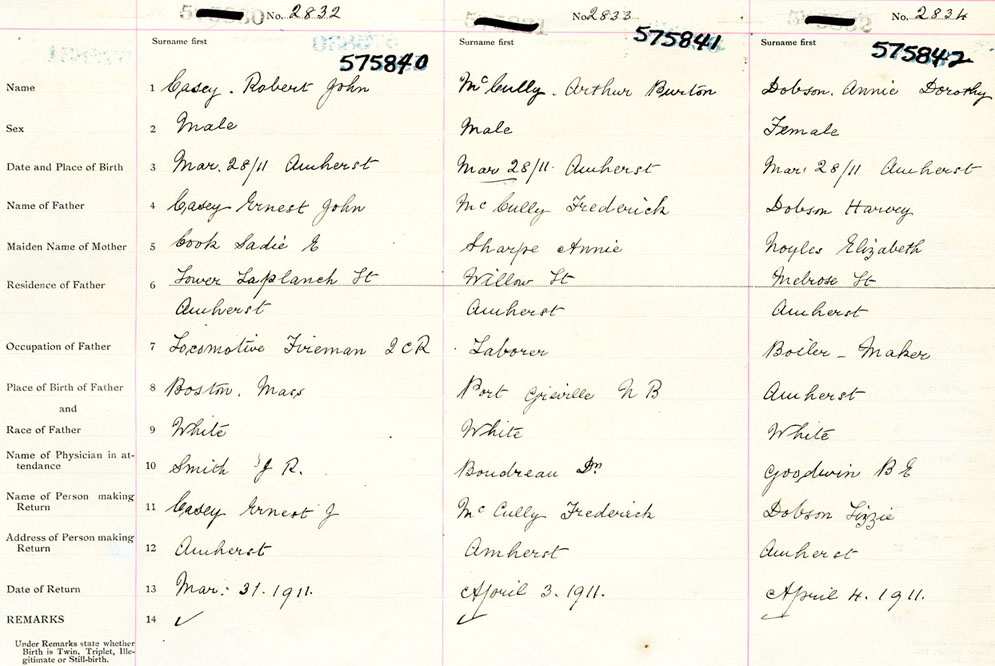 No. 2832 No. 2833 No. 2834
Surname first Surname first Surname first
575840 575841 575842
Name 1 Casey. Robert John McCully. Arthur Burton Dobson. Annie Dorothy
Sex 2 Male Male Female
Date and Place of Birth 3 Mar. 28/11 Amherst Mar 28/11. Amherst Mar. 28/11 Amherst
Name of Father 4 Casey Ernest John McCully Frederick Dobson Harvey
Maiden Name of Mother 5 Cook Sadie E Sharpe Annie Noyles Elizabeth
Residence of Father 6 Lower Laplanch St Willow St Melrose St
Amherst Amherst Amherst
Occupation of Father 7 Locomotive Fireman I C R Laborer Boiler - Maker
Place of Birth of Father 8 Boston. Mass Port Greville N B Amherst
and
Race of Father 9 White White White
Name of Physician in at-
tendance 10 Smith J R. Boudreau Dr Goodwin B E
Name of Person making
Return 11 Casey Ernest J McCully Frederick Dobson Lizzie
Address of Person making
Return 12 Amherst Amherst Amherst
Date of Return 13 Mar. 31. 1911. April 3. 1911. April 4. 1911.
REMARKS 14 ✓ ✓ ✓
Under Remarks state whether
Birth is Twin, Triplet, Ille-
gitimate or Still-birth.